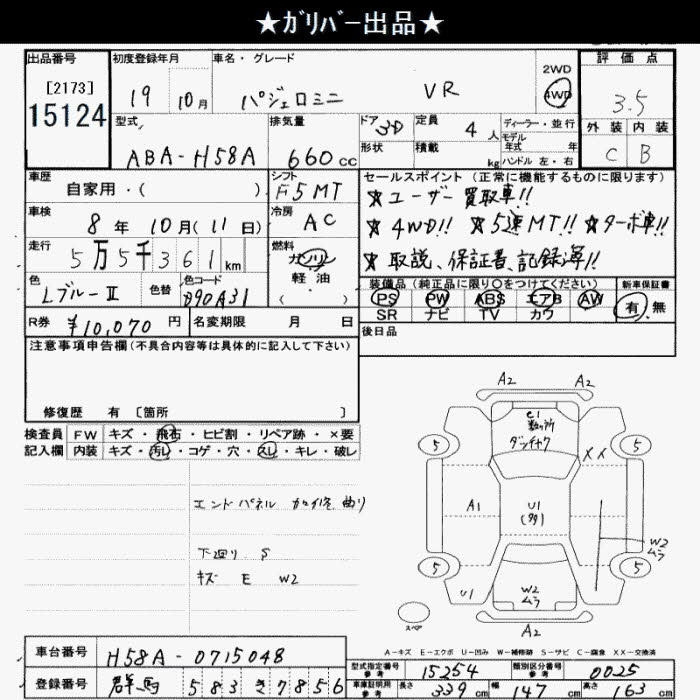 ★ガリバー出品★
出品番号
[2173]
15124
初度登録年月 車名・グレード
19 10月 パジェロミニ VR
2WD
4WD
評価点
3.5
外装 内装
C B
型式 排気量 ドア 定員 ディーラー・並行
ABA-H58A 660cc 3D 4人 モデル年式 年
形状 積載 kg ハンドル 左・右
車歴 シフト セールスポイント(正常に機能するものに限ります)
自家用・( ) F5MT ★ユーザー買取車!!
車検 冷房
8年10月(11日) AC ★4WD!! ★5速MT!! ★ターボ車!!
走行 燃料
5万5千361km ガソリン ★取説、保証書、記録簿!!
軽油
( )
色 色替 色コード
LブルーII D90A31
装備品(純正品に限り○をつけてください) 新車保証書
PS PW ABS エアB AW 有・無
SR ナビ TV カワ
R券 ¥10,070円 名変期限 月 日 後日品
注意事項申告欄(不具合内容等は具体的に記入して下さい)
修復歴 有 〔箇所 〕
検査員 FW キズ・飛石・ヒビ割・リペア跡・×要
記入欄 内装 キズ・汚レ・コゲ・穴・スレ・キレ・破レ
エンドパネル カロイ修 曲り
下廻り S
キズ E W2
A2 A2
C1
ダッチャク
5 XX 5
A1 U1
(タタ)
W2
ムラ
5 5
U1 W2
ムラ
スペア
A2
A-キズ E-エクボ U-凹み W-補修跡 S-サビ C-腐食 XX-交換済
車台番号 H58A-0715048
型式指定番号 参考 15254 類別区分番号 参考 0025
登録番号 群馬 583 き 7856
車庫証明用 参考 長さ 339cm 幅 147cm 高さ 163cm